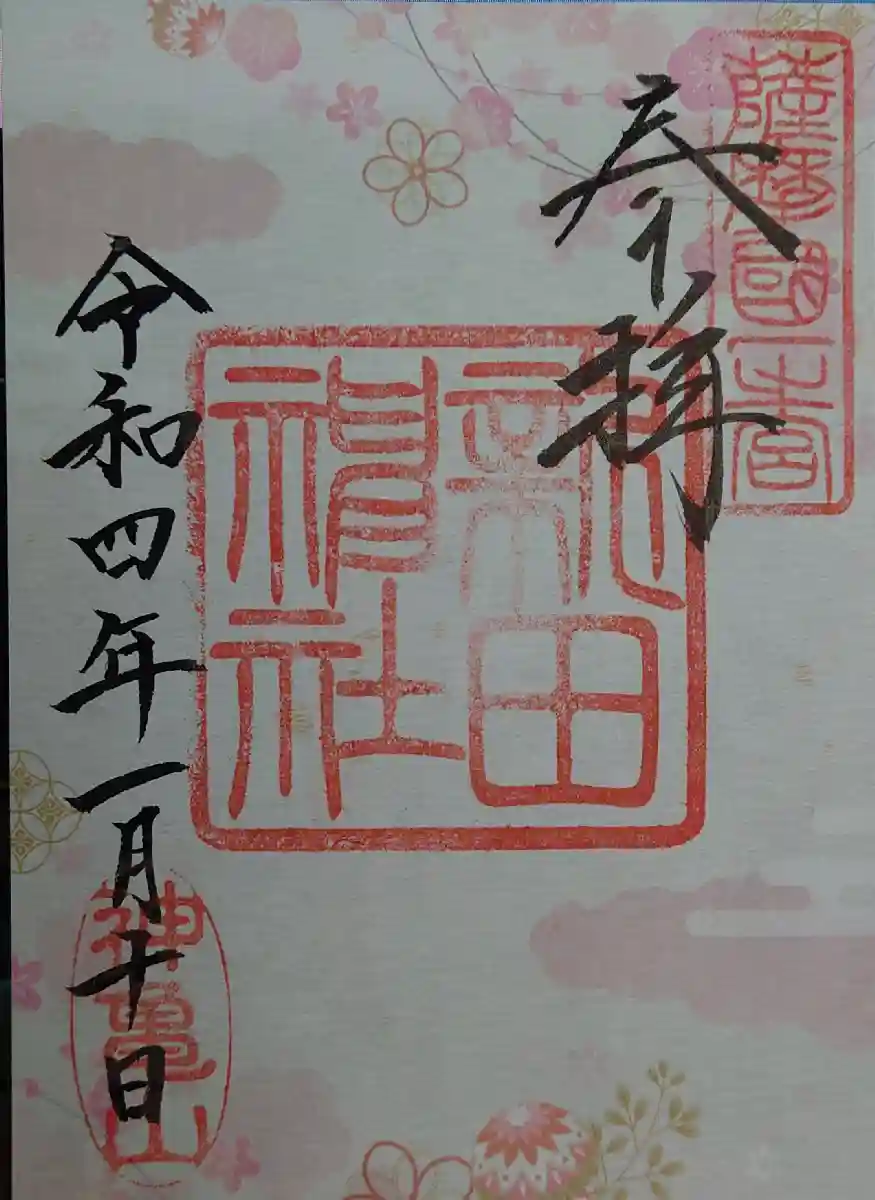 薩摩國一宮
奉拝
新田神社
令和四年一月十日
神亀山